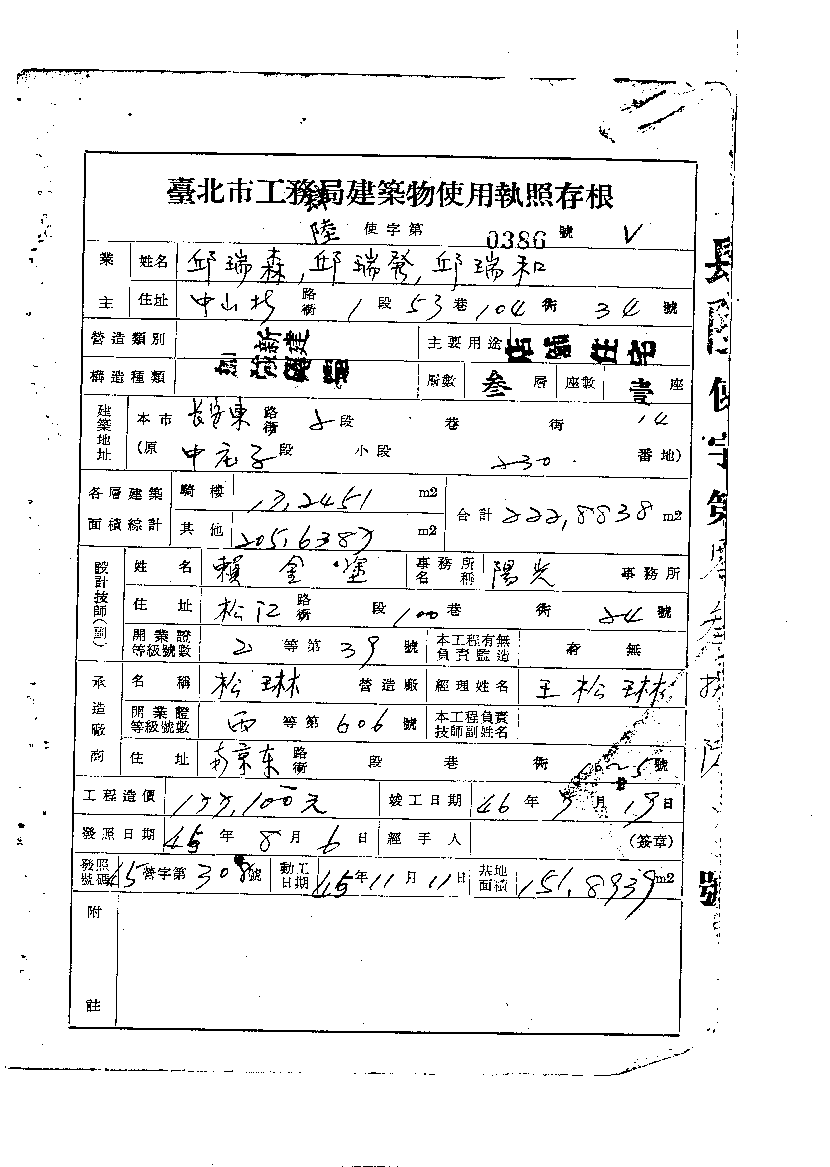 臺北市工務局建築物使用執照存根
肆陸 使字第 0386 號 V
業主 姓名 邱瑞森,邱瑞發,邱瑞和
住址 中山北 路街 1 段 53 巷 104 衖 34 號
營造類別 新建 主要用途 店鋪 住宅
構造種類 加強磚 層數 叁 層 座數 壹 座
建築地址 本市 長安東 路街 2 段 巷 衖 14
(原 中庄子 段 小段 230 番地)
各層建築面積綜計 騎樓 17,2451 m2 合計 222,8838 m2
其他 205,6387 m2
設計技師(副) 姓名 賴金塗 事務所名稱 陽光 事務所
住址 松江 路街 段 100 巷 衖 24 號
開業證等級號數 2 等第 39 號 本工程有無負責監造 有 無
承造廠商 名稱 松琳 營造廠 經理姓名 王松琳
開業證等級號數 丙 等第 606 號 本工程負責技師副姓名
住址 南京东 路街 段 巷 衖 號
工程造價 177,100元 竣工日期 46 年 月 19 日
發照日期 45 年 8 月 6 日 經手人 (簽章)
發照號碼 45 營字第 號 動工日期 45 年 11 月 11 日 基地面積 151,8939 m2
附註
長陸使字第
號